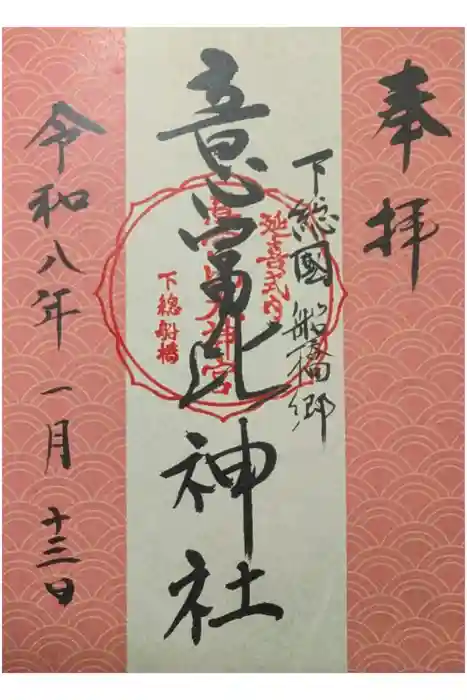 奉拝
下総國船橋郷
意富比神社
延喜式内
下總船橋
令和八年一月十三日